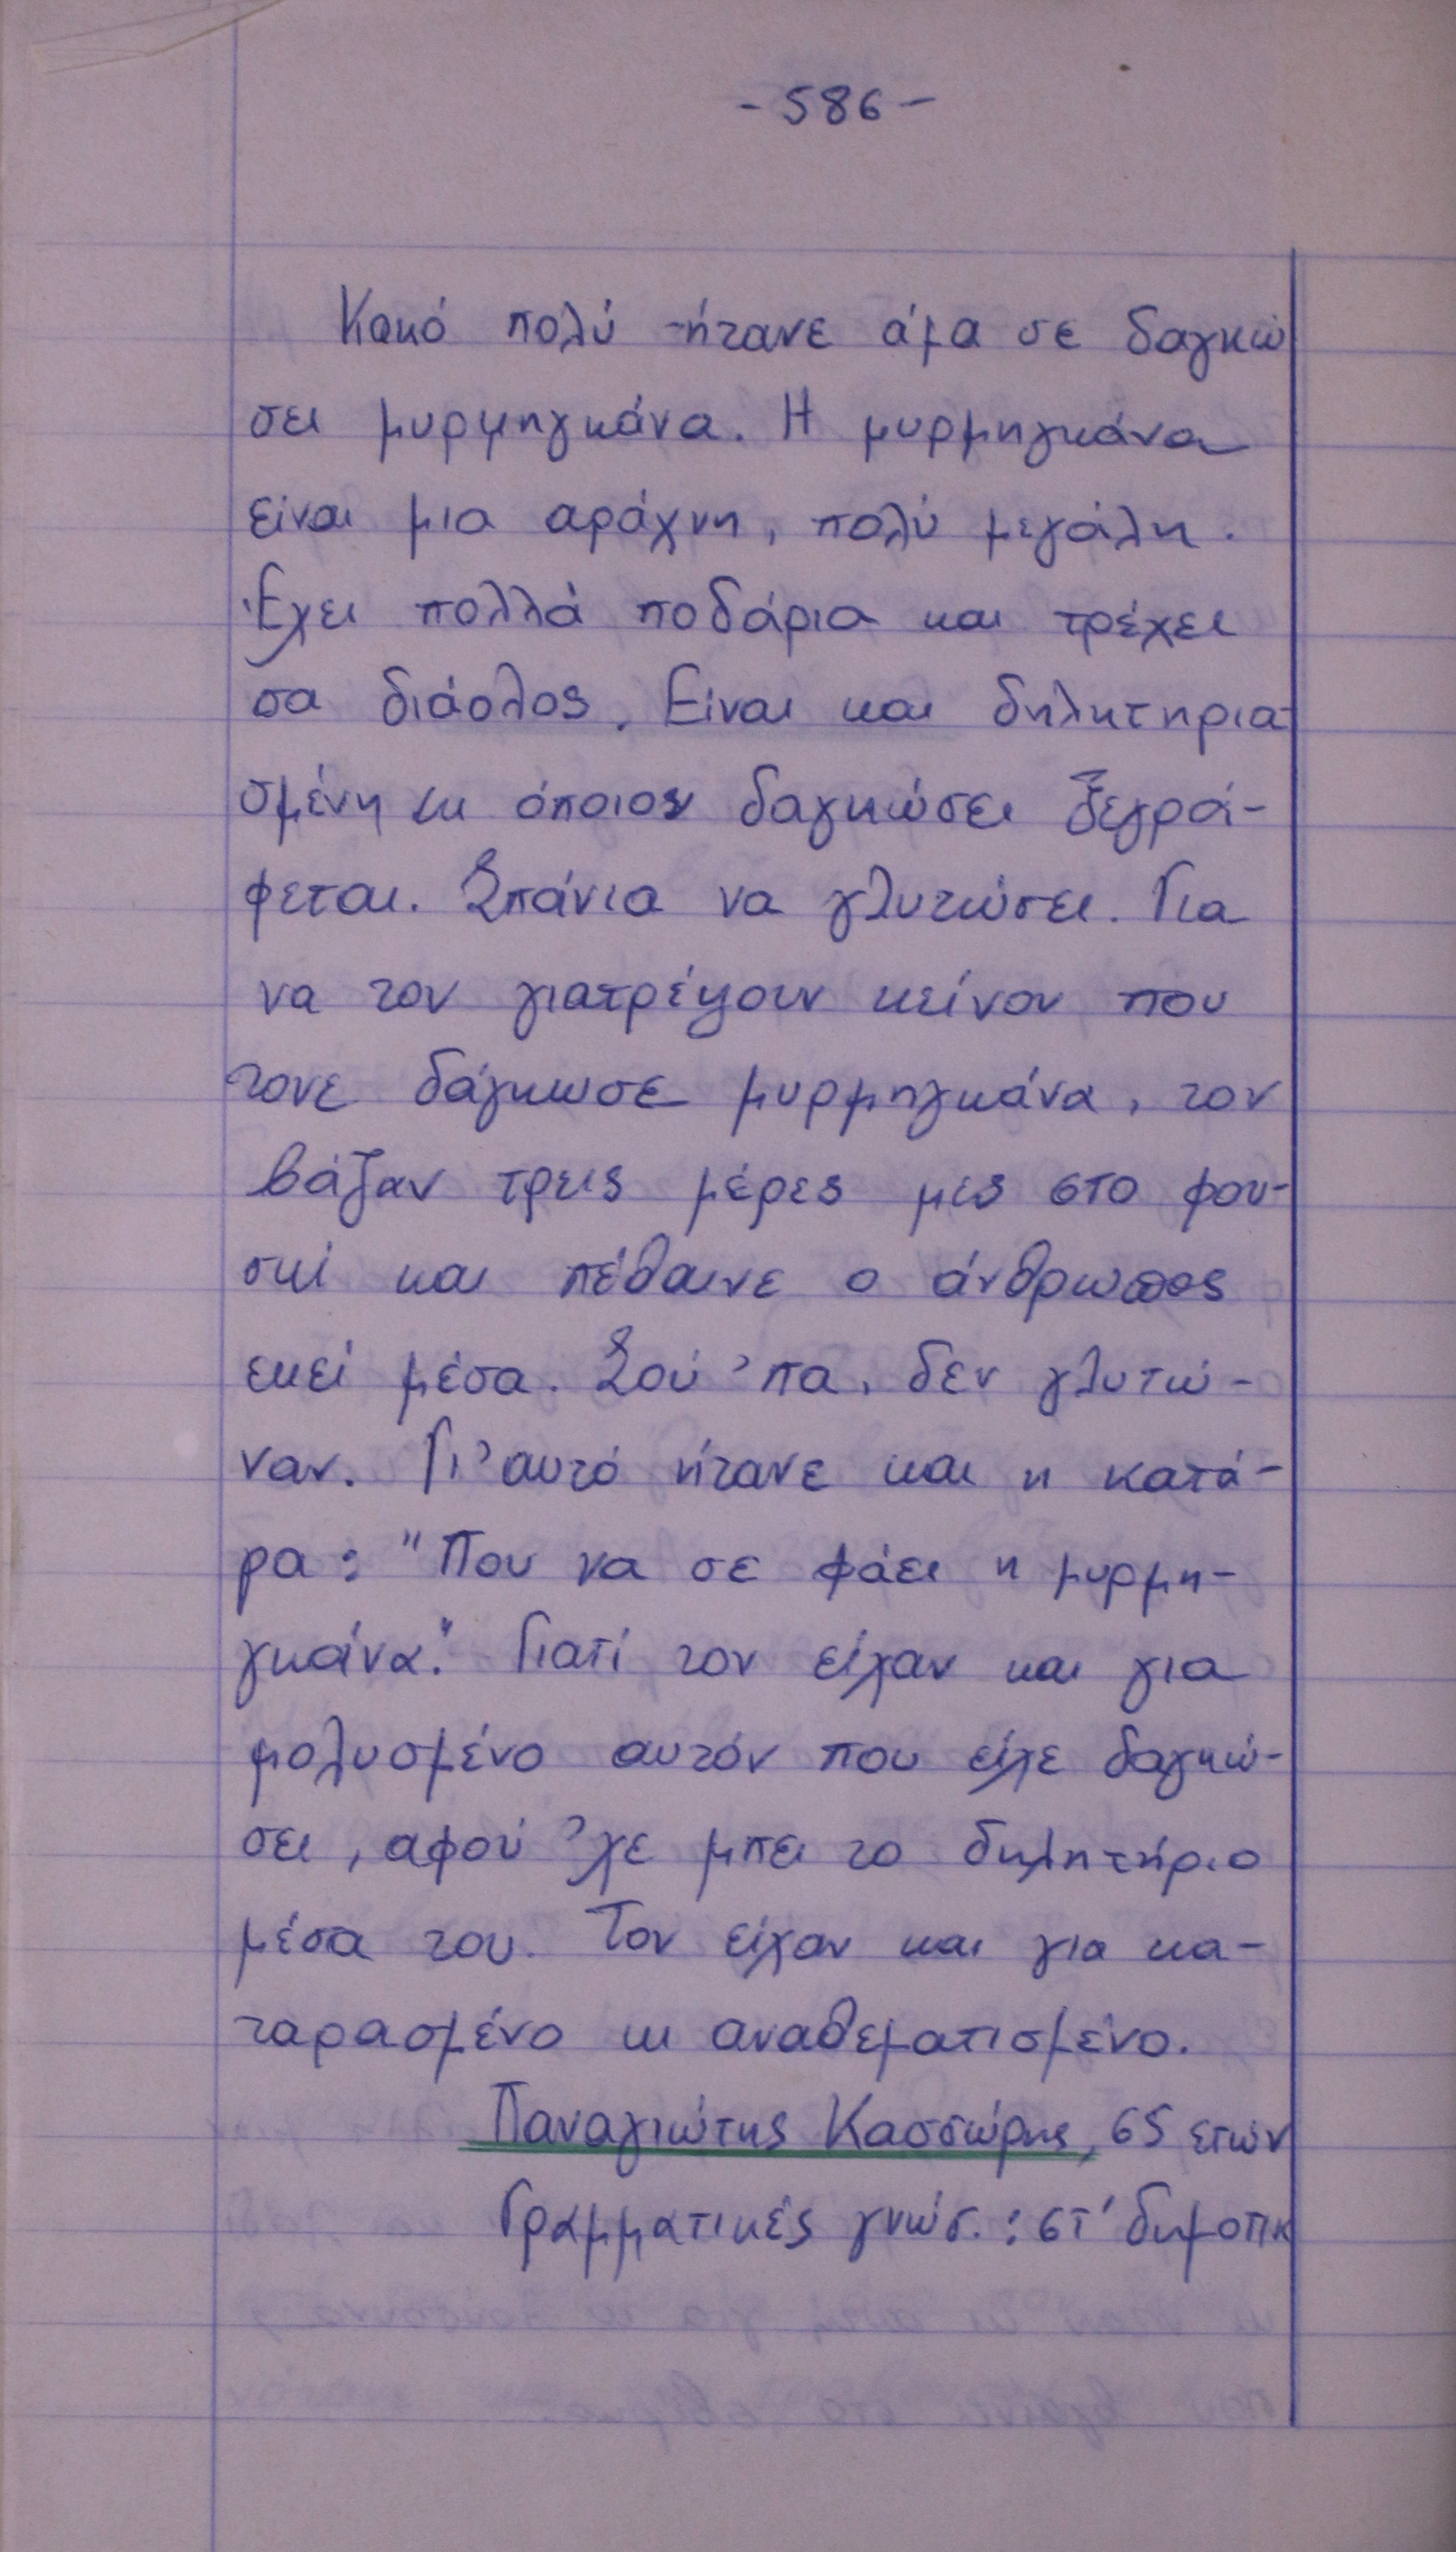 - 586 -
Κακό πολύ ήτανε άμα σε δαγκώ
σει μυρμηγκάνα. Η μυρμηγκάνα
είναι μια αράχνη, πολύ μεγάλη.
Έχει πολλά ποδάρια και τρέχει
σα διάολος. Είναι και δηλητηρια-
σμένη κι όποιον δαγκώσει ξεγρά-
φεται. Σπάνια να γλυτώσει. Για
να τον γιατρέψουν κείνον που
τονε δάγκωσε μυρμηγκάνα, τον
βάζαν τρεις μέρες μες στο φου-
σκί και πέθαινε ο άνθρωπος
εκεί μέσα. Σού 'πα, δεν γλυτώ-
ναν. Γι' αυτό ήτανε και η κατά-
ρα: "Που να σε φάει η μυρμη-
γκάνα." Γιατί τον είχαν και για
μολυσμένο αυτόν που είχε δαγκώ-
σει, αφού 'χε μπει το δηλητήριο
μέσα του. Τον είχαν και για κα-
ταρασμένο κι αναθεματισμένο.
Παναγιώτης Κασσώρης, 65 ετών
Γραμματικές γνώσ. : στ' δημοτικ